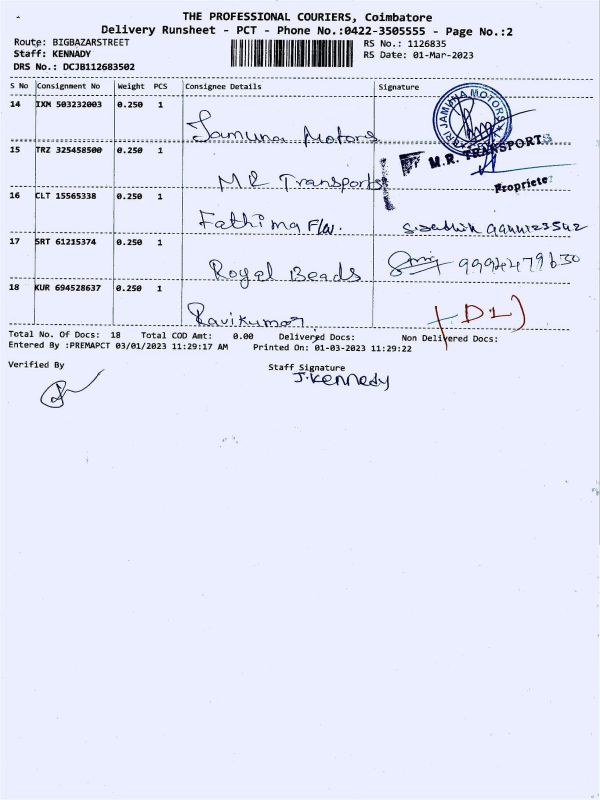 THE PROFESSIONAL COURIERS, Coimbatore
Delivery Runsheet - PCT - Phone No.:0422-3505555 - Page No.:2
Route: BIGBAZARSTREET RS No.: 1126835
Staff: KENNADY RS Date: 01-Mar-2023
DRS No.: DCJB112683502
S No Consignment No Weight PCS Consignee Details Signature
14 IXM 503232003 0.250 1 Jamuna Motors
SRI JAMUNA MOTORS
15 TRZ 325458500 0.250 1 M R Transports
M.R. TRANSPORTS
Proprietor
16 CLT 15565338 0.250 1 Fathima Flw. S.Sadhik 9944123542
17 SRT 61215374 0.250 1 Royal Beads 9994479630
18 KUR 694528637 0.250 1 Ravikumar (DL)
Total No. Of Docs: 18 Total COD Amt: 0.00 Delivered Docs: Non Delivered Docs:
Entered By :PREMAPCT 03/01/2023 11:29:17 AM Printed On: 01-03-2023 11:29:22
Verified By Staff Signature
J.Kennedy